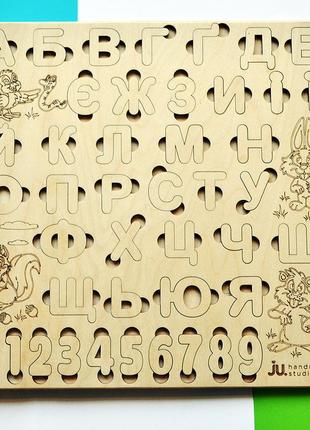 А Б В Г Ґ Д Е
Є Ж З И І
Й К Л М Н
О П Р С Т У
Ф Х Ц Ч Ш
Щ Ь Ю Я
1 2 3 4 5 6 7 8 9
JU. handm
studio